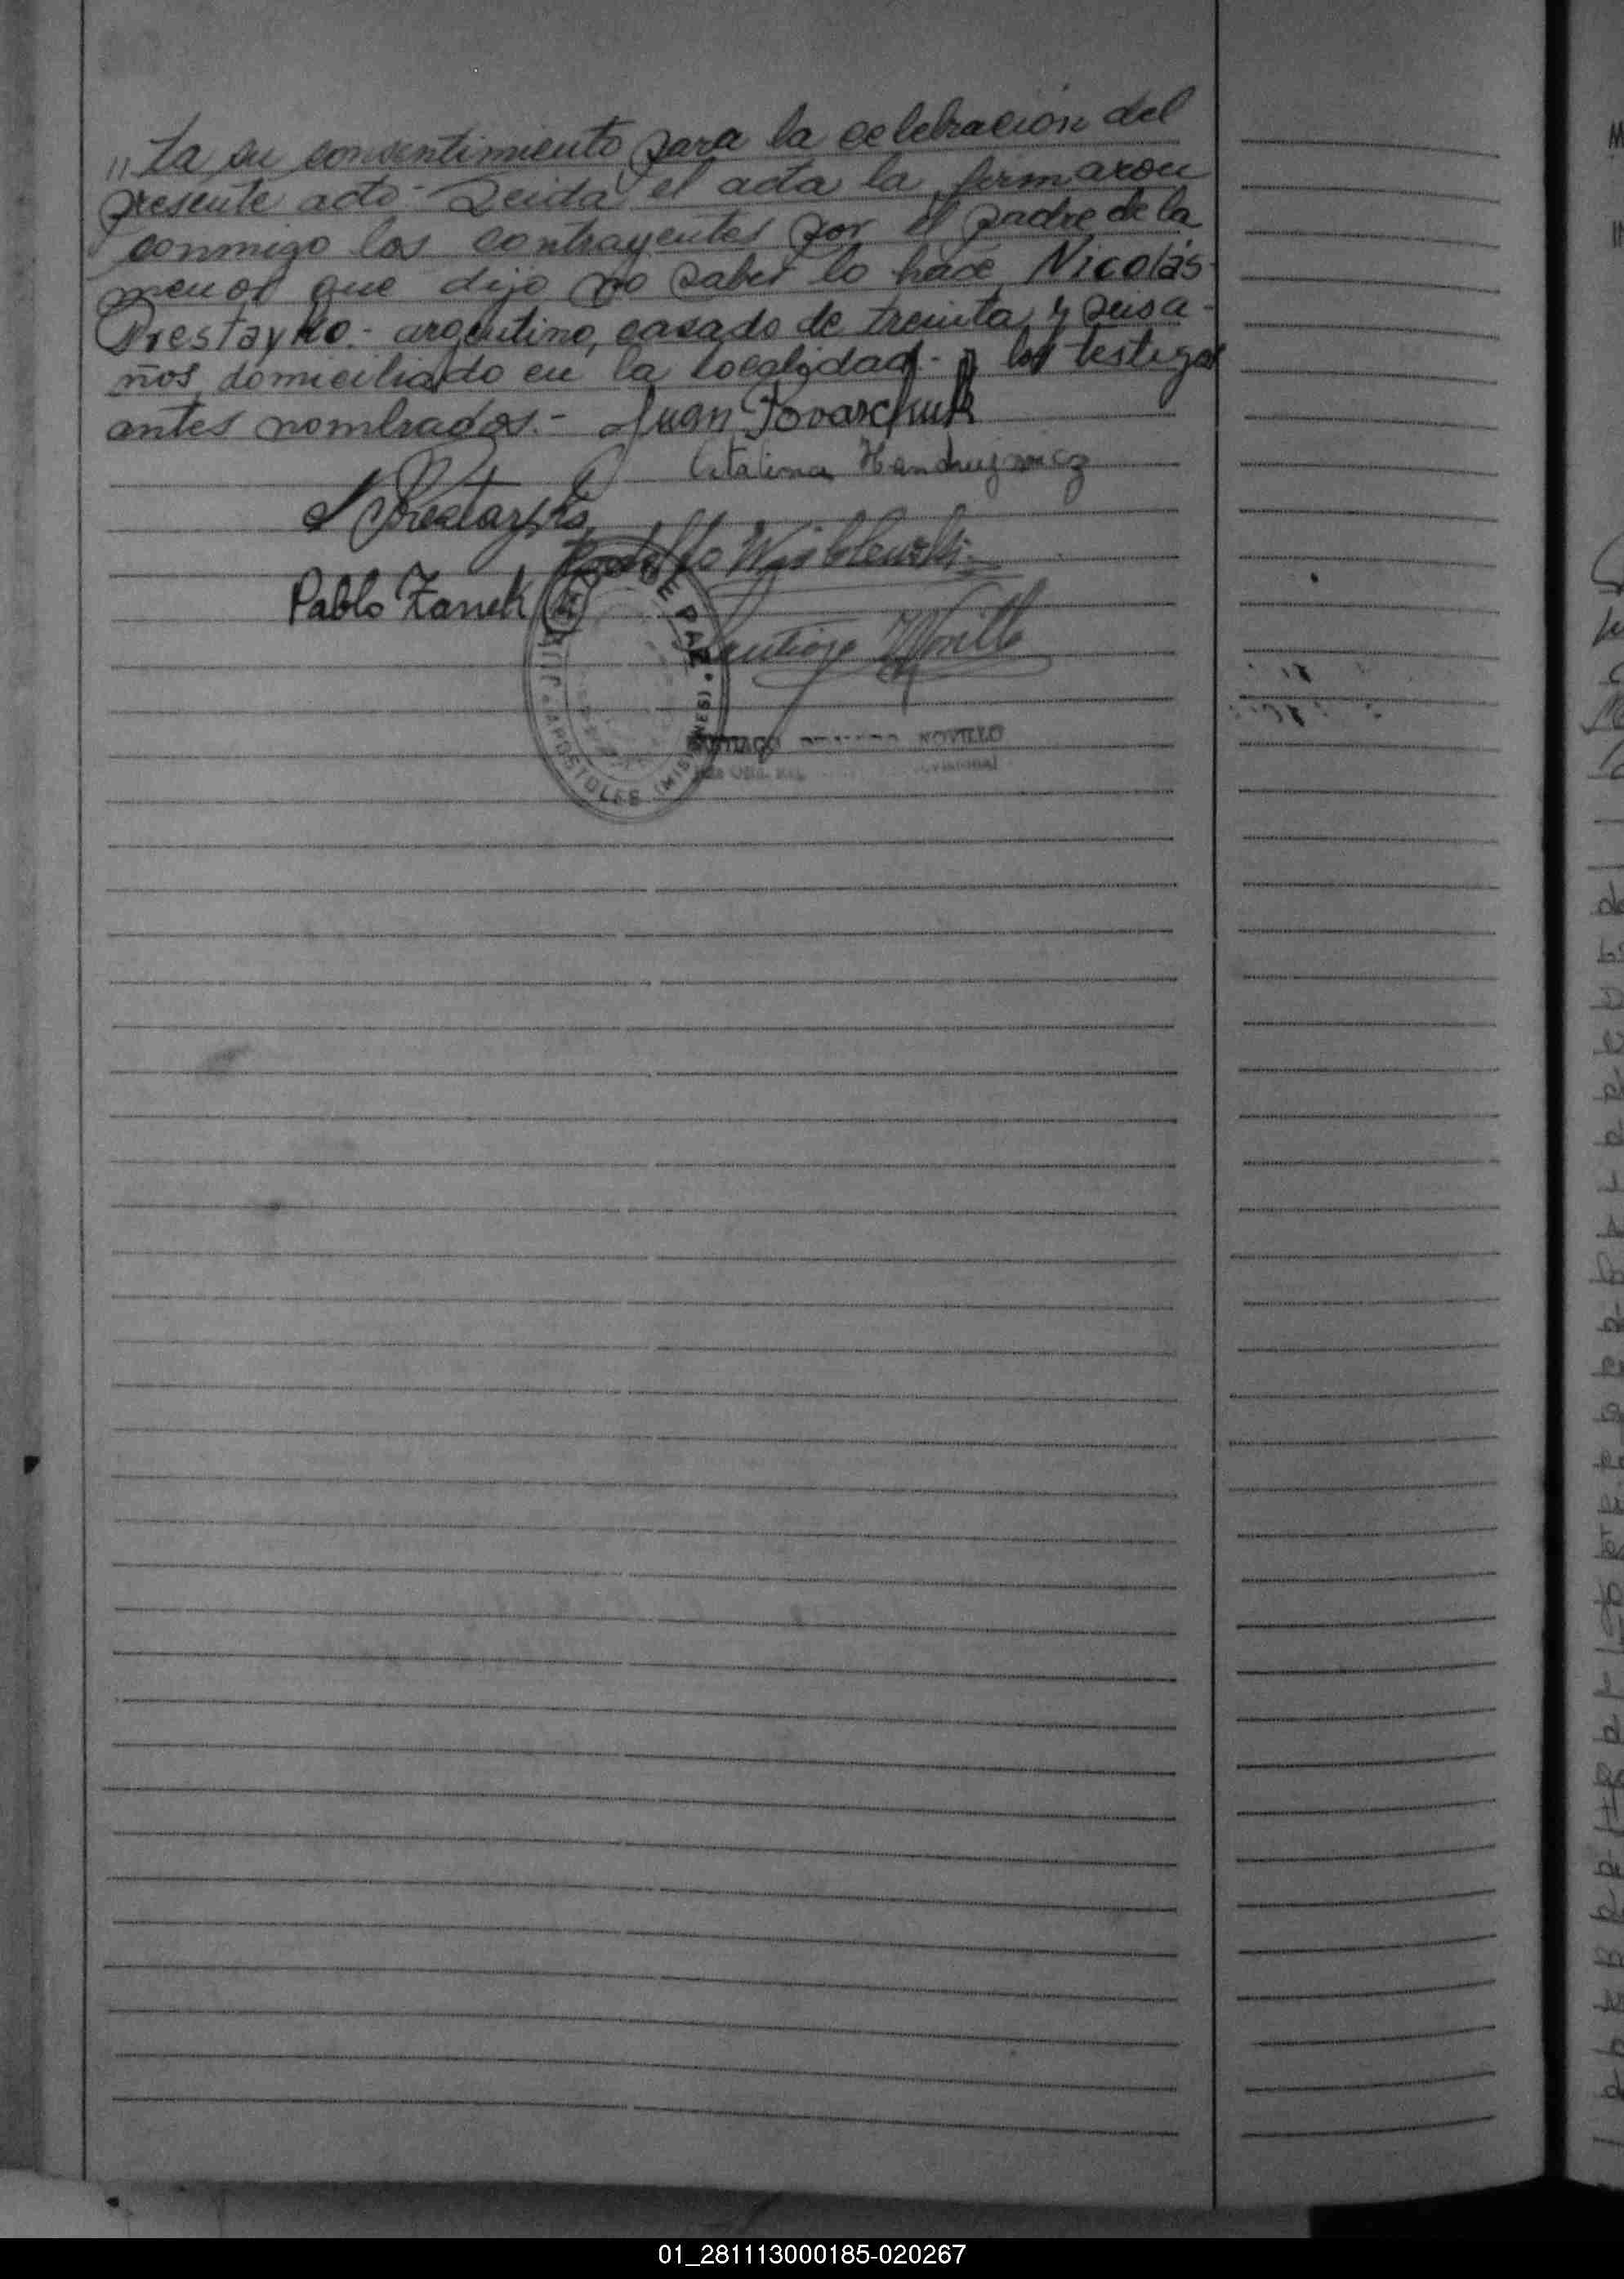 "ta su consentimiento para la celebración del
presente acto - Leida el acta la firmaron
conmigo los contrayentes por el padre de la
menor que dijo no saber lo hace Nicolás
Prestayko.- argentino, casado de treinta y seis a-
ños domiciliado en la localidad - y los testigos
antes nombrados.- Juan Povarchuk
Catalina Handruj
N Prestayko
Rodolfo
Pablo Zanek (h)
Santiago Novillo
DE PAZ
APOSTOLES (MISIONES)
SANTIAGO NOVILLO
01_281113000185-020267